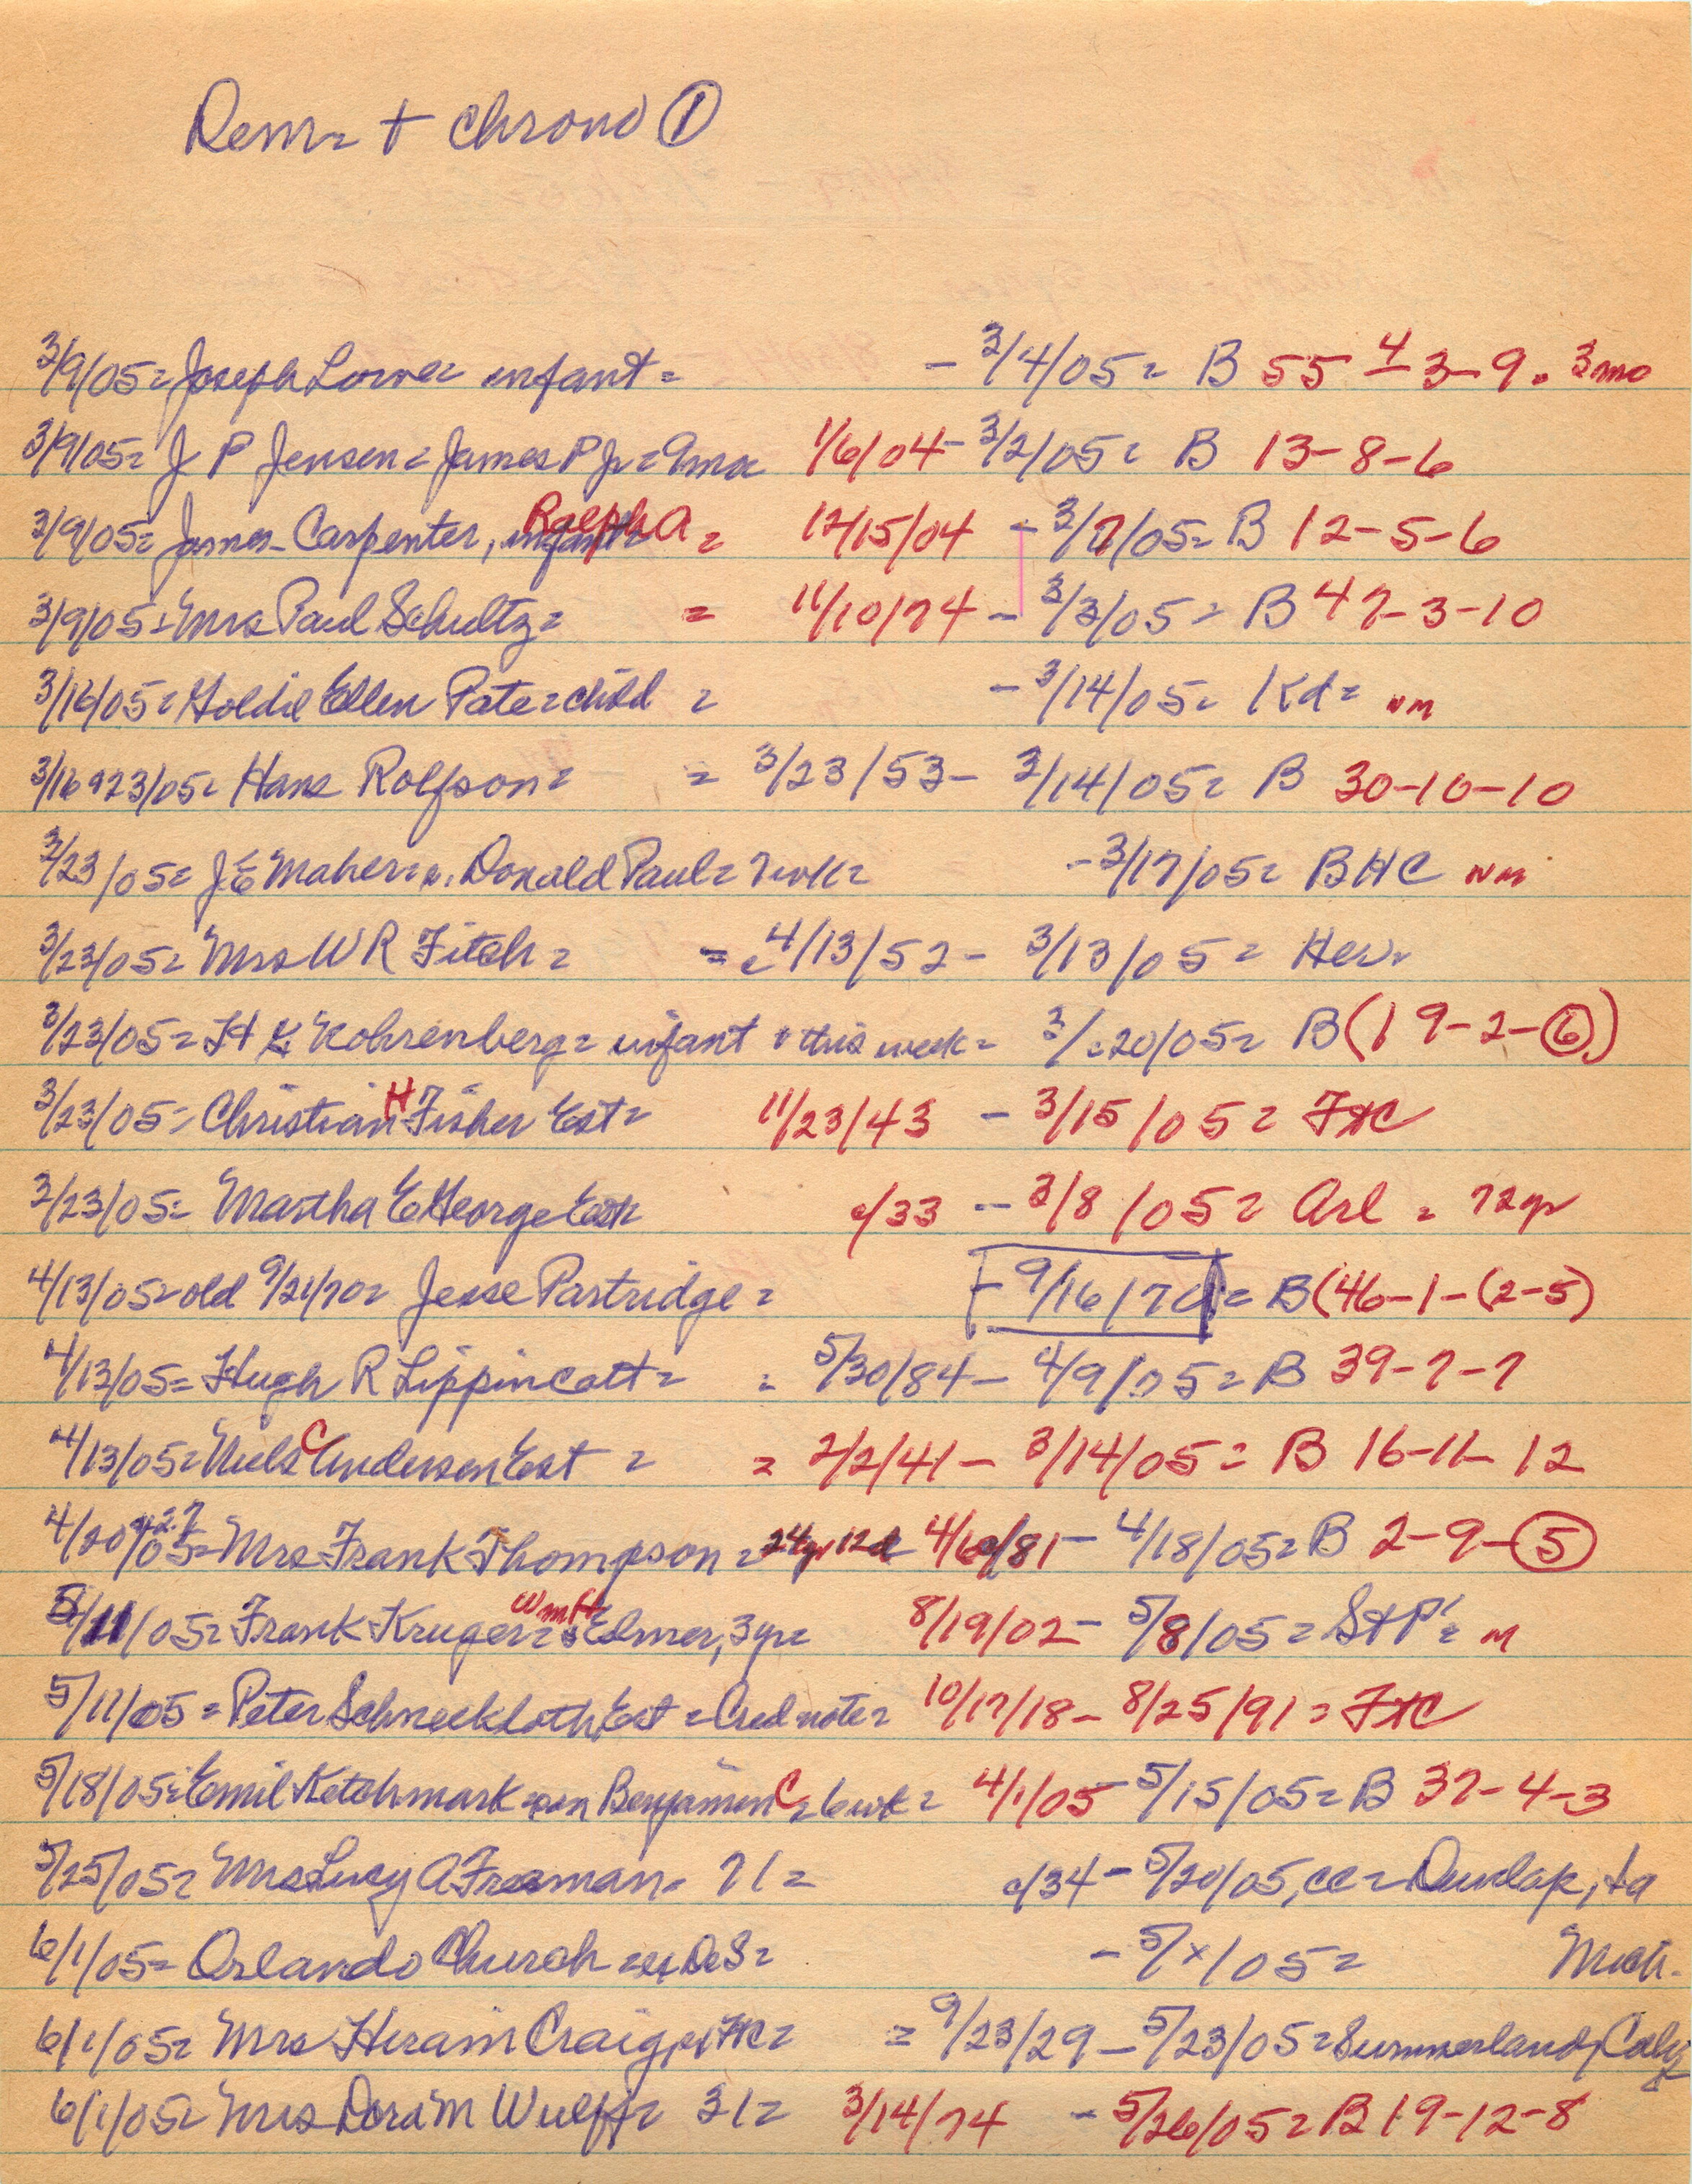 Dem = + Chrono ①
3/9/05 = Joseph Lowe = infant = - 3/4/05 = B 55-4-3-9 = 3mo
3/9/05 = J P Jensen = James P Jr = 9mo 1/6/04 - 3/2/05 = B 13-8-6
3/9/05 = James Carpenter, infant Ralph A = 12/15/04 - 3/7/05 = B 12-5-6
3/9/05 = Mrs Paul Schultz = = 11/10/74 - 3/3/05 = B 47-3-10
3/16/05 = Goldie Ellen Pate = child = - 3/14/05 = Kd = nm
3/16 & 23/05 = Hans Rolfson = = 3/23/53 - 3/14/05 = B 30-10-10
3/23/05 = J E Maher = Donald Paul = 7wk = - 3/17/05 = BHC nm
3/23/05 = Mrs W R Fitch = = c 4/13/52 - 3/13/05 = Her
3/23/05 = H K Kohrenberg = infant this week = 3/20/05 = B (19-2-⑥)
3/23/05 = Christian H Fisher Est = 11/23/43 - 3/15/05 = FtC
3/23/05 = Martha E George Est = c/33 - 3/8/05 = Arl = 72yr
4/13/05 = old 9/21/70 = Jesse Partridge = - 9/16/70 = B (46-1-(2-5)
4/13/05 = Hugh R Lippincott = = 5/30/84 - 4/9/05 = B 39-7-7
4/13/05 = Niels C Andersen Est = = 2/2/41 - 3/14/05 = B 16-11-12
4/20 & 27/05 = Mrs Frank Thompson = 24yr 12d 4/6/81 - 4/18/05 = B 2-9-⑤
5/11/05 = Frank Kruger = s Wm H Elmer, 3yr = 8/19/02 - 5/8/05 = St P = m
5/11/05 = Peter Schneckloth, Est = Cred note = 10/17/18 - 8/25/91 = FtC
5/18/05 = Emil Ketchmark = son Benjamin C = 6wk = 4/1/05 - 5/15/05 = B 37-4-3
5/25/05 = Mrs Lucy A Freeman = 71 = c/34 - 5/20/05, cc = Dunlap, Ia
6/1/05 = Orlando Church = ex DeS = - 5/x/05 = Mich.
6/1/05 = Mrs Hiram Craig, = 9/23/29 - 5/23/05 = Summerland, Calif
6/1/05 = Mrs Dora M Wulff = 31 = 3/14/74 - 5/26/05 = B 19-12-8